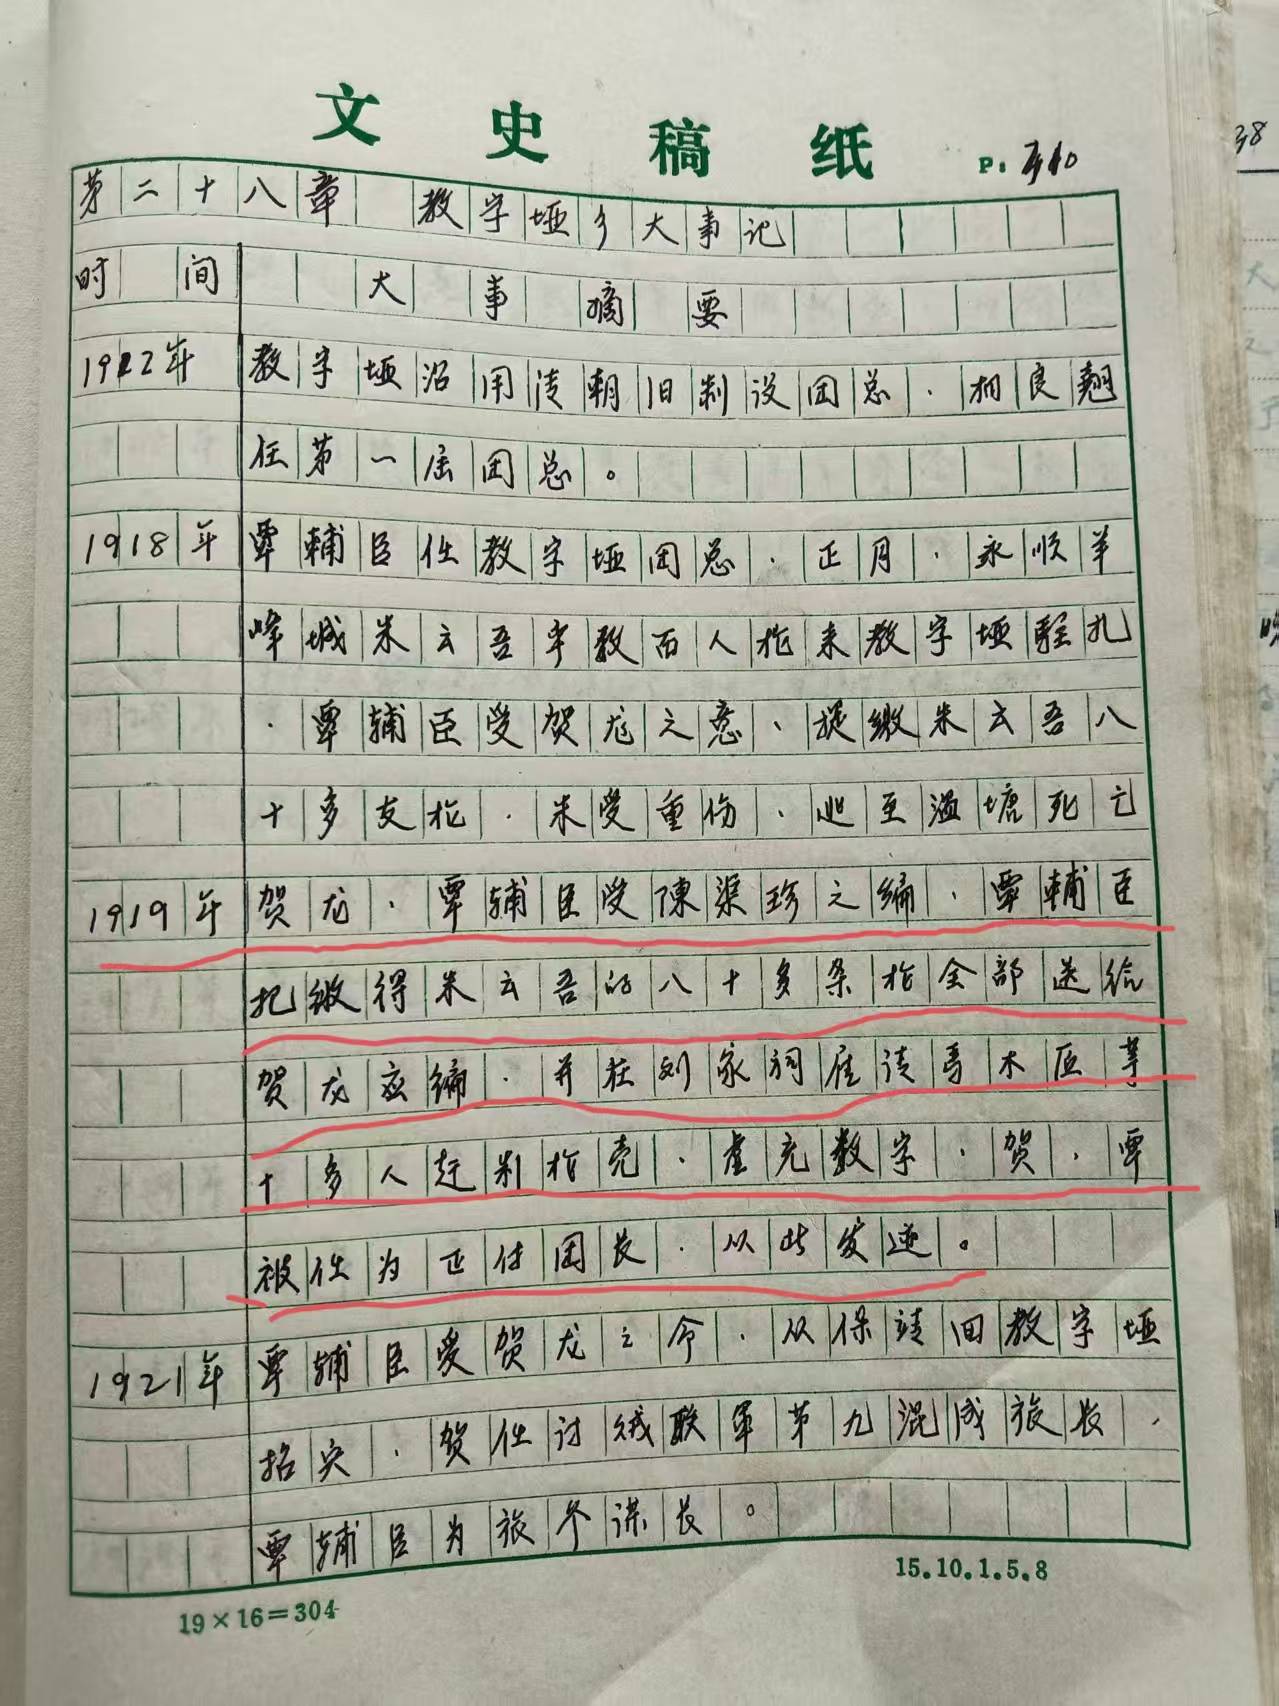 文史稿纸 P: 340
第二十八章 教字垭乡大事记
时间 大事摘要
1912年 教字垭沿用清朝旧制设团总.相良翘
任第一届团总。
1918年 覃辅臣任教字垭团总.正月.永顺羊
峰城朱云吾率数百人枪来教字垭驻扎
.覃辅臣受贺龙之意、提缴朱云吾八
十多支枪.朱受重伤.逃至温塘死亡
1919年 贺龙.覃辅臣受陈渠珍之编.覃辅臣
把缴得朱云吾的八十多条枪全部送给
贺龙应编.并在刘家祠雇请马木匠等
十多人赶制枪壳.虚充数字.贺.覃
被任为正付团长.从此发迹。
1921年 覃辅臣受贺龙之命.从保靖回教字垭
招灾.贺任讨贼联军第九混成旅长.
覃辅臣为旅参谋长。
19×16=304
15.10.1.5.8
38